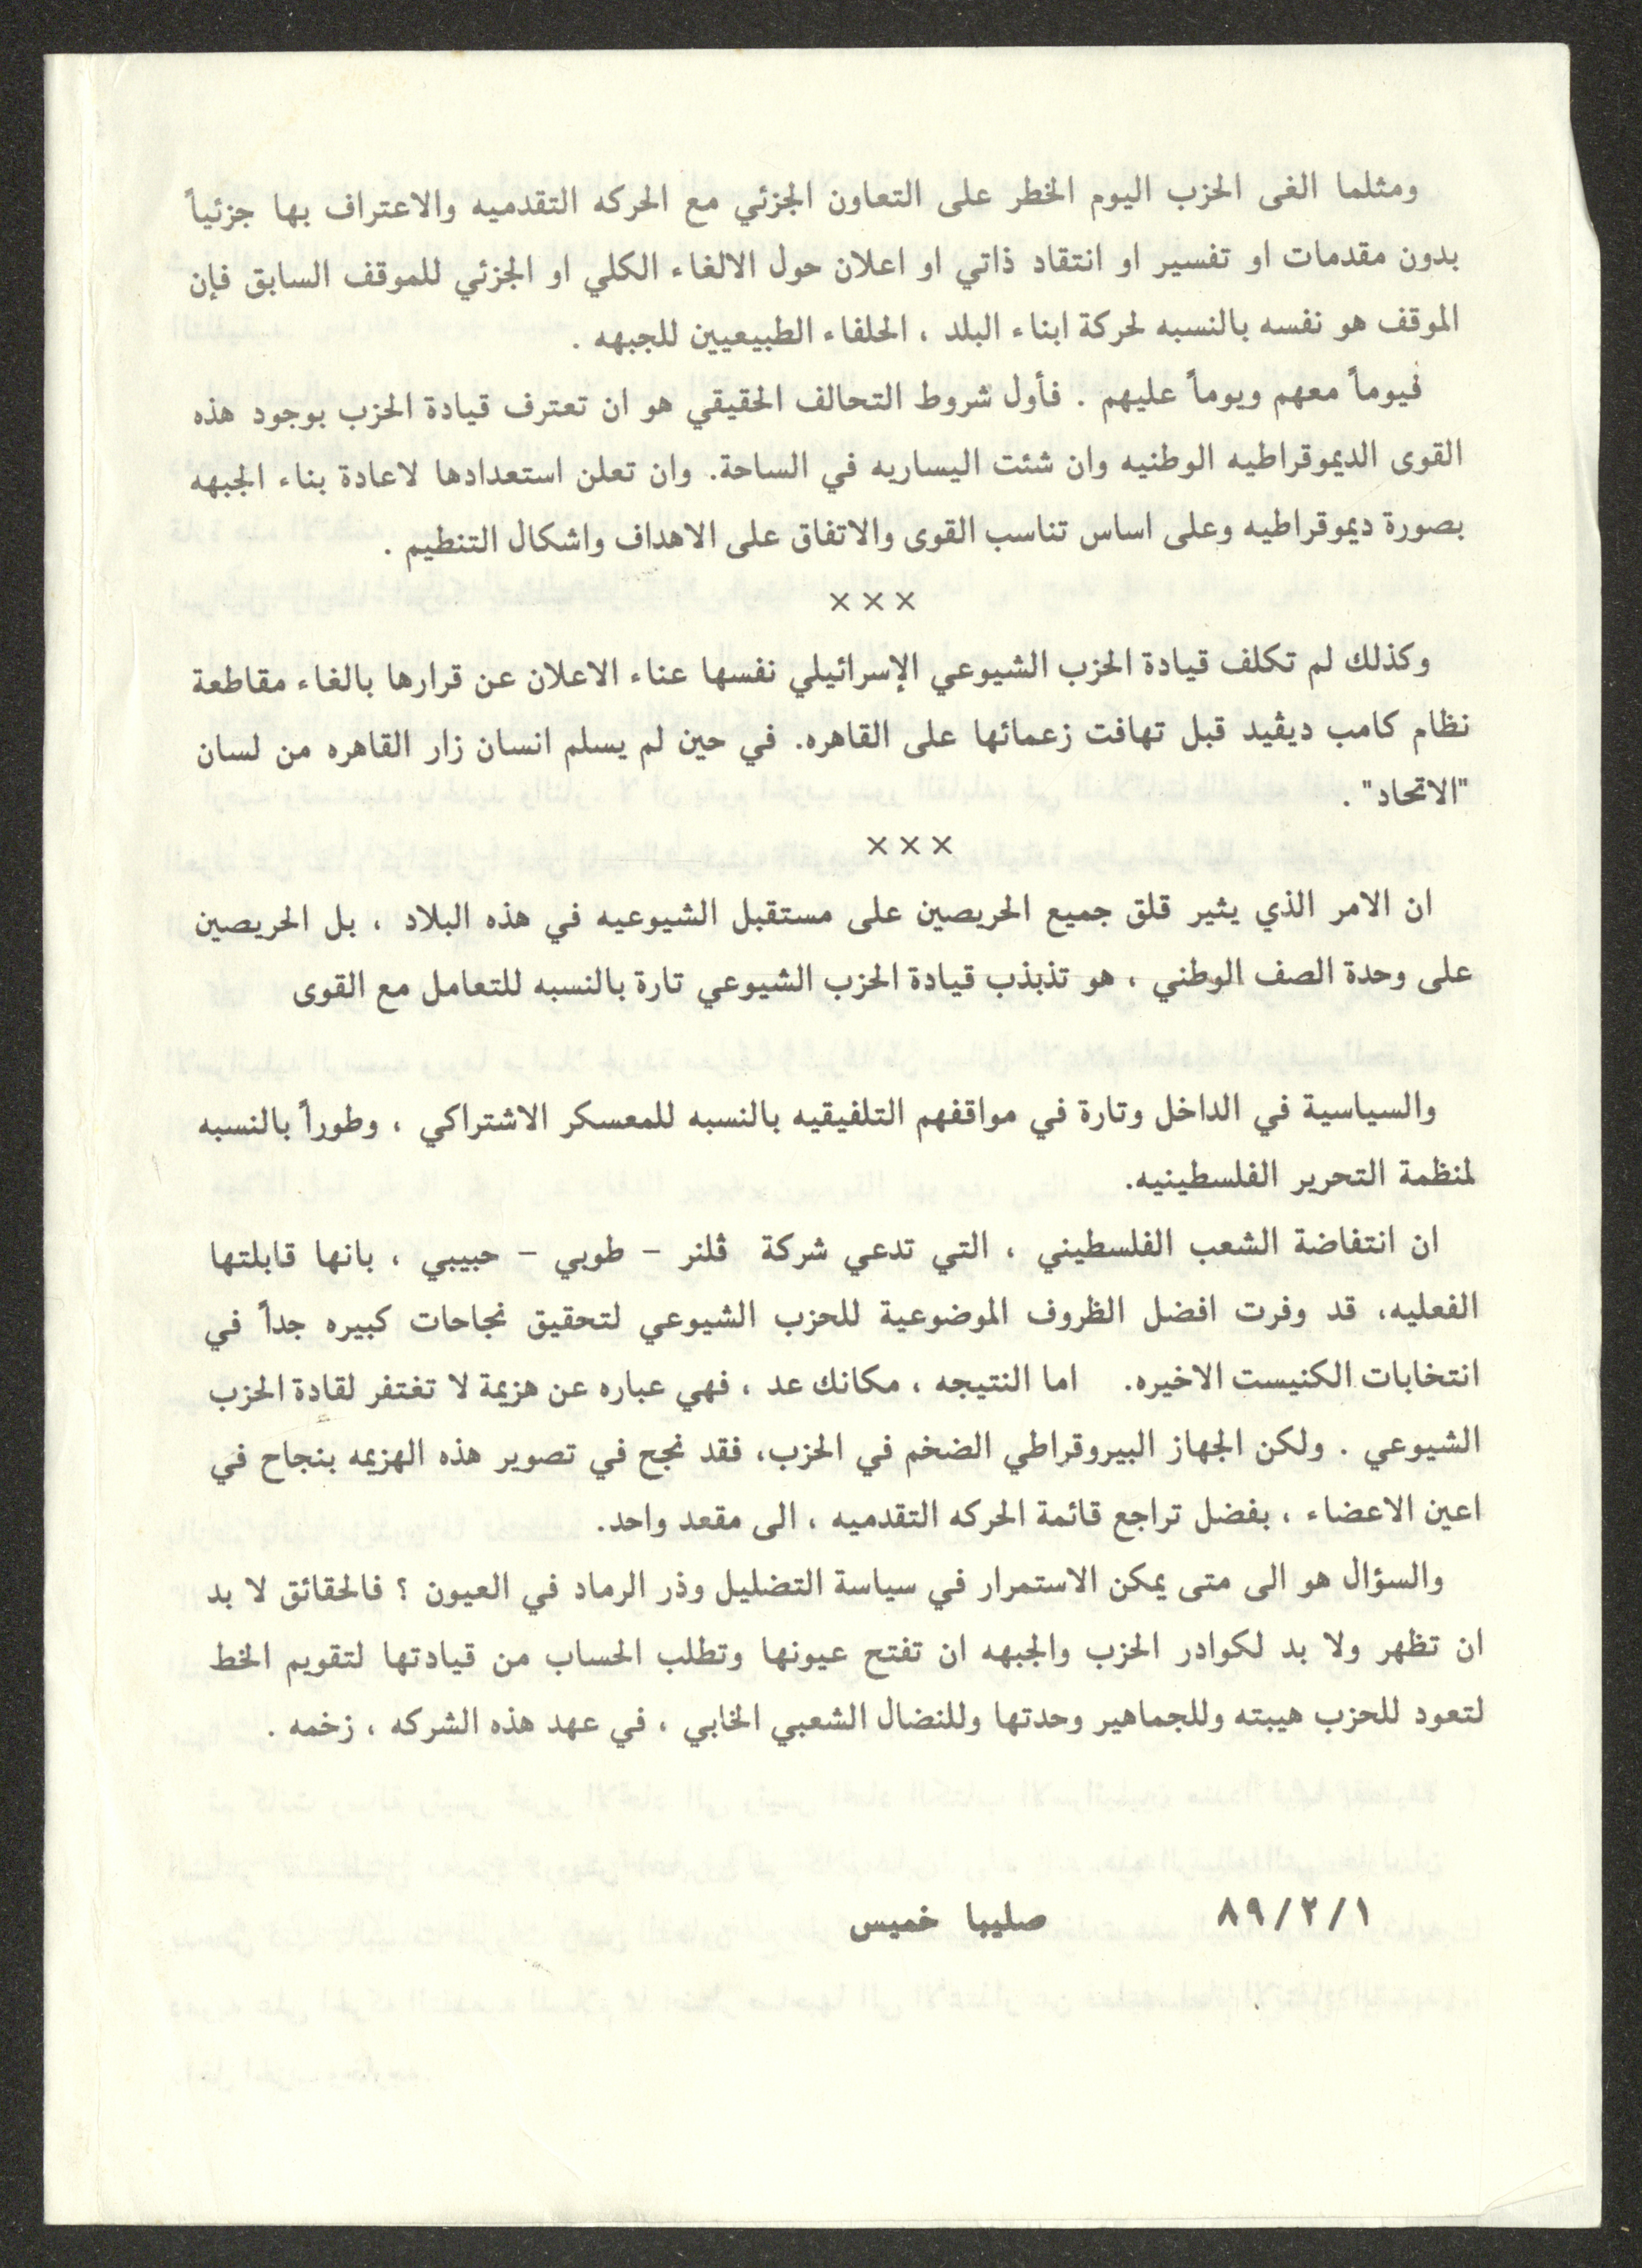 ومثلما الغى الحزب اليوم الخطر على التعاون الجزئي مع الحركه التقدميه والاعتراف بها جزئياً
بدون مقدمات او تفسير او انتقاد ذاتي او اعلان حول الالغاء الكلي او الجزئي للموقف السابق فإن
الموقف هو نفسه بالنسبه لحركة ابناء البلد ، الحلفاء الطبيعيين للجبهه .
فيوماً معهم ويوماً عليهم . فأول شروط التحالف الحقيقي هو ان تعترف قيادة الحزب بوجود هذه
القوى الديموقراطيه الوطنيه وان شئت اليساريه في الساحة. وان تعلن استعدادها لاعادة بناء الجبهه
بصورة ديموقراطيه وعلى اساس تناسب القوى والاتفاق على الاهداف واشكال التنطيم .
×××
وكذلك لم تكلف قيادة الحزب الشيوعي الإسرائيلي نفسها عناء الاعلان عن قرارها بالغاء مقاطعة
نظام كامب ديڤيد قبل تهافت زعمائها على القاهره. في حين لم يسلم انسان زار القاهره من لسان
"الاتحاد" .
×××
ان الامر الذي يثير قلق جميع الحريصين على مستقبل الشيوعيه في هذه البلاد ، بل الحريصين
على وحدة الصف الوطني ، هو تذبذب قيادة الحزب الشيوعي تارة بالنسبه للتعامل مع القوى
والسياسية في الداخل وتارة في مواقفهم التلفيقيه بالنسبه للمعسكر الاشتراكي ، وطوراً بالنسبه
لمنظمة التحرير الفلسطينيه.
ان انتفاضة الشعب الفلسطيني ، التي تدعي شركة ڤلنر - طوبي - حبيبي ، بانها قابلتها
الفعليه، قد وفرت افضل الظروف الموضوعية للحزب الشيوعي لتحقيق نجاحات كبيره جداً في
انتخابات الكنيست الاخيره. اما النتيجه ، مكانك عد ، فهي عباره عن هزيمة لا تغتفر لقادة الحزب
الشيوعي . ولكن الجهاز البيروقراطي الضخم في الحزب، فقد نجح في تصوير هذه الهزيمه بنجاح في
اعين الاعضاء ، بفضل تراجع قائمة الحركه التقدميه ، الى مقعد واحد.
والسؤال هو الى متى يمكن الاستمرار في سياسة التضليل وذر الرماد في العيون ؟ فالحقائق لا بد
ان تظهر ولا بد لكوادر الحزب والجبهه ان تفتح عيونها وتطلب الحساب من قيادتها لتقويم الخط
لتعود للحزب هيبته وللجماهير وحدتها وللنضال الشعبي الخابي ، في عهد هذه الشركه ، زخمه .
١/٢/٨٩ صليبا خميس